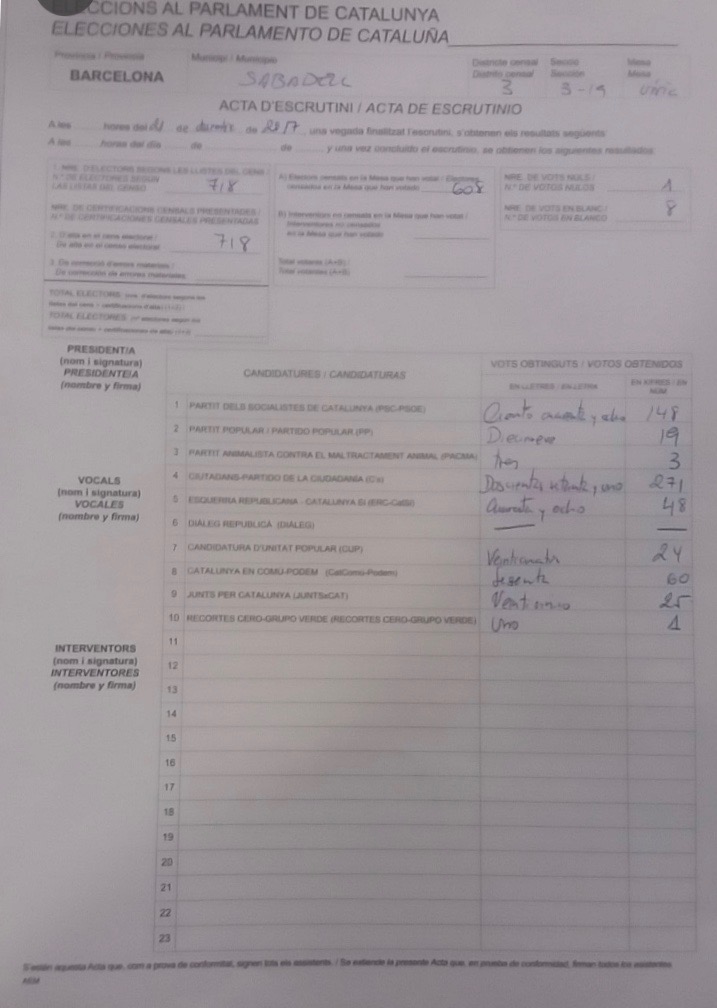 CCIONS AL PARLAMENT DE CATALUNYA
ELECCIONES AL PARLAMENTO DE CATALUÑA
Provincia / Provincia Municipi / Municipio Districte censal Secció Mesa
Distrito censal Sección Mesa
BARCELONA SABADELL 3 3-19 Única
ACTA D'ESCRUTINI / ACTA DE ESCRUTINIO
A les hores del 21 de de 2017, una vegada finalitzat l'escrutini, s'obtenen els resultats següents:
A les horas del día de de y una vez concluido el escrutinio, se obtienen los siguientes resultados:
1. NRE. D'ELECTORS SEGONS LES LLISTES DEL CENS /
N.º DE ELECTORES SEGÚN
LAS LISTAS DEL CENSO 718
NRE. DE CERTIFICACIONS CENSALS PRESENTADES /
N.º DE CERTIFICACIONES CENSALES PRESENTADAS
2. D'alta en el cens electoral /
De alta en el censo electoral 718
3. De correcció d'errors materials /
De corrección de errores materiales
A) Electors censats en la Mesa que han votat / Electores
censados en la Mesa que han votado 608
B) Interventors no censats en la Mesa que han votat /
Interventores no censados
en la Mesa que han votado
Total votants (A+B) /
Total votantes (A+B)
NRE. DE VOTS NULS /
N.º DE VOTOS NULOS 1
NRE. DE VOTS EN BLANC /
N.º DE VOTOS EN BLANCO 8
TOTAL ELECTORS
TOTAL ELECTORES
PRESIDENT/A
(nom i signatura)
PRESIDENTE/A
(nombre y firma)
CANDIDATURES / CANDIDATURAS VOTS OBTINGUTS / VOTOS OBTENIDOS
EN LLETRES / EN LETRA EN XIFRES / EN NÚM
1 PARTIT DELS SOCIALISTES DE CATALUNYA (PSC-PSOE) Ciento cuarenta y ocho 148
2 PARTIT POPULAR / PARTIDO POPULAR (PP) Diecinueve 19
3 PARTIT ANIMALISTA CONTRA EL MALTRACTAMENT ANIMAL (PACMA) tres 3
4 CIUTADANS-PARTIDO DE LA CIUDADANÍA (C's) Doscientos setenta y uno 271
5 ESQUERRA REPUBLICANA - CATALUNYA SÍ (ERC-CatSí) Cuarenta y ocho 48
6 DIÀLEG REPUBLICÀ (DIÀLEG) — —
7 CANDIDATURA D'UNITAT POPULAR (CUP) Veinticuatro 24
8 CATALUNYA EN COMÚ-PODEM (CatComú-Podem) Sesenta 60
9 JUNTS PER CATALUNYA (JUNTSxCAT) Venticinco 25
10 RECORTES CERO-GRUPO VERDE (RECORTES CERO-GRUPO VERDE) Uno 1
VOCALS
(nom i signatura)
VOCALES
(nombre y firma)
INTERVENTORS
(nom i signatura)
INTERVENTORES
(nombre y firma)
11
12
13
14
15
16
17
18
19
20
21
22
23
S'estén aquesta Acta que, com a prova de conformitat, signen tots els assistents. / Se extiende la presente Acta que, en prueba de conformidad, firman todos los asistentes